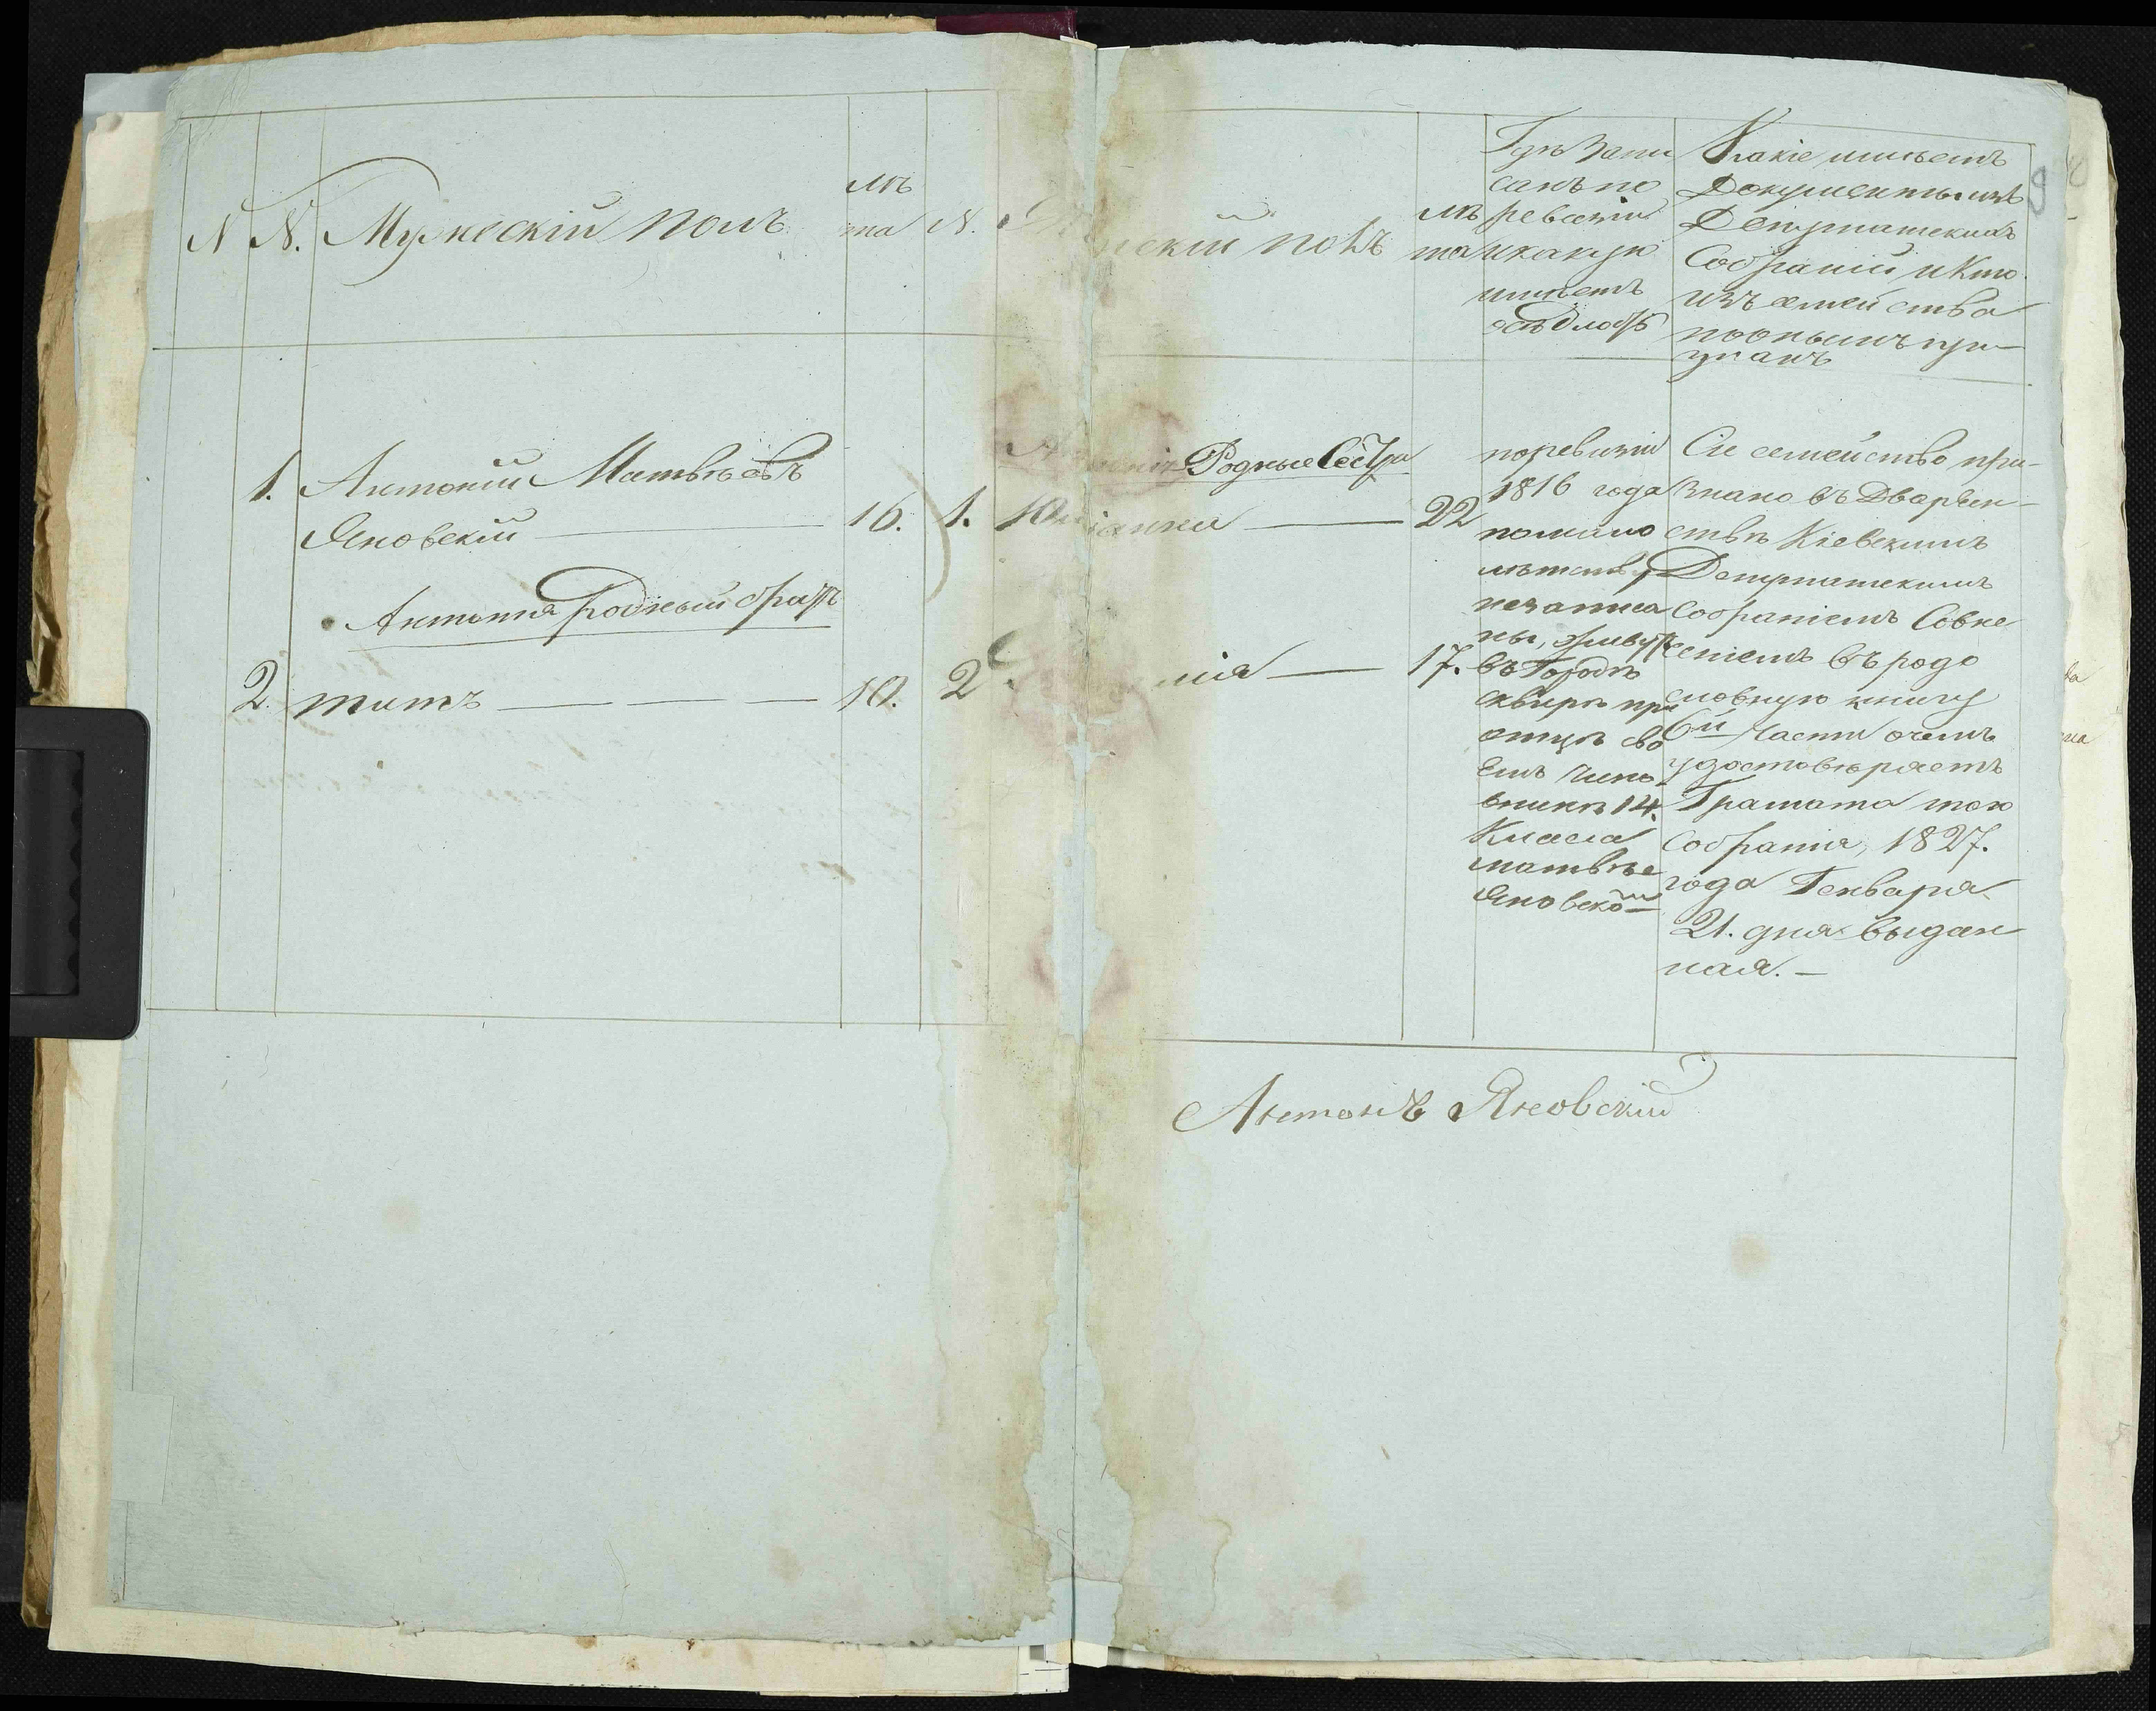 N N. Мужескій полъ
лѣ
та
N.
нскій полъ
лѣ
та
Гдѣ запи
санъ по
ревизіи
и какую
имѣетъ
осѣдлость
Какіе имѣетъ
Документы изъ
Депутатскихъ
Собраній и Кто
изъ семейства
по онымъ при-
знанъ
9
1. Антоній Матвѣевъ
Яновскій 16.
Антонія родный братъ
2. титъ 10.
Родные Сестры
1. 22
2 17.
по ревизіи
1816 года
по мало
лѣтству
незаписа
ны, живутъ
въ Городѣ
сквирѣ при
отцѣ сво
емъ чино
вникѣ 14.
Класса
матвѣе
Яновскомъ
Сіе семейство при-
знано въ Дворян-
ствѣ Кіевскимъ
Депутатскимъ
Собраніемъ Совне
сеніемъ въ родо
словную книгу
6й Части очемъ
удостовѣряетъ
Грамата того
Собранія, 1827.
года Генваря
21. дня выдан
ная.
Антонъ Яновскій